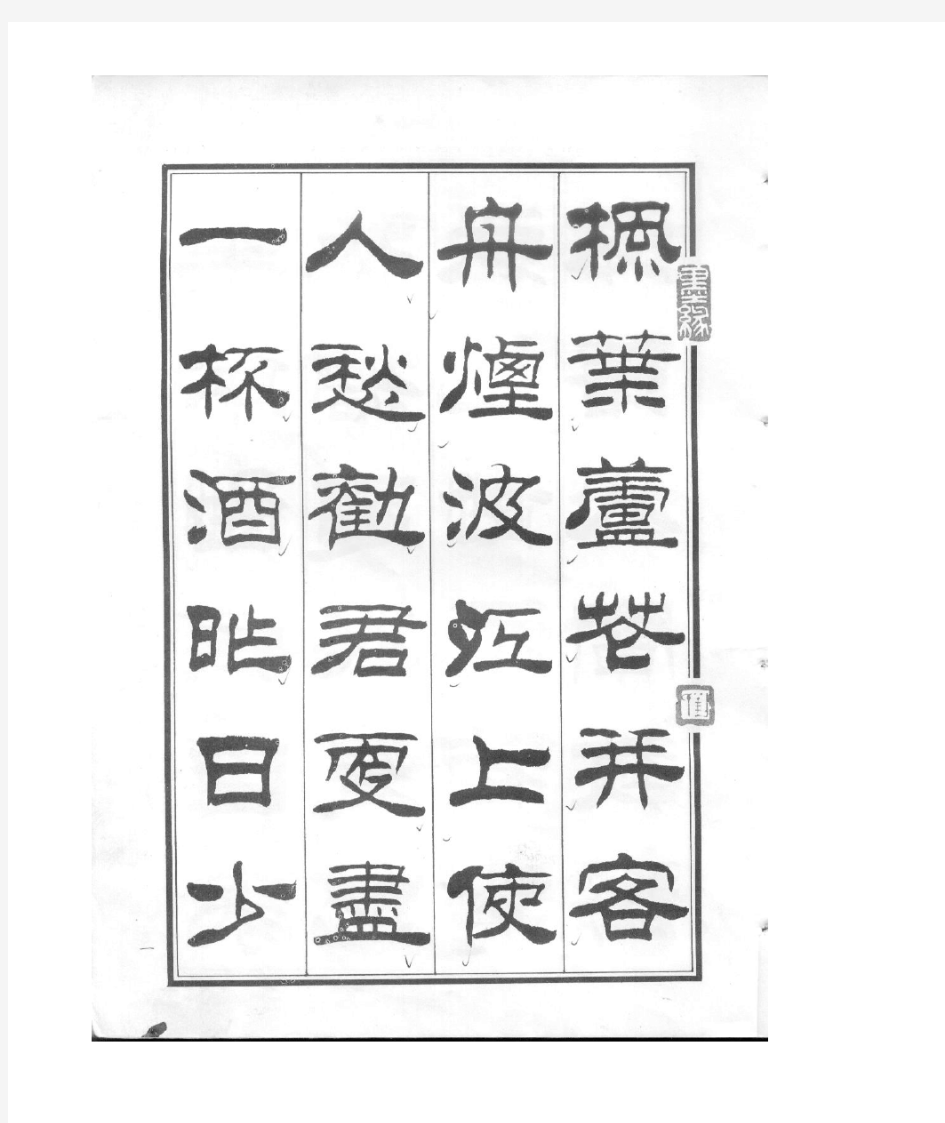 楓葉蘆花并客
舟煙波江上使
人愁勸君更盡
一杯酒昨日少
墨緣